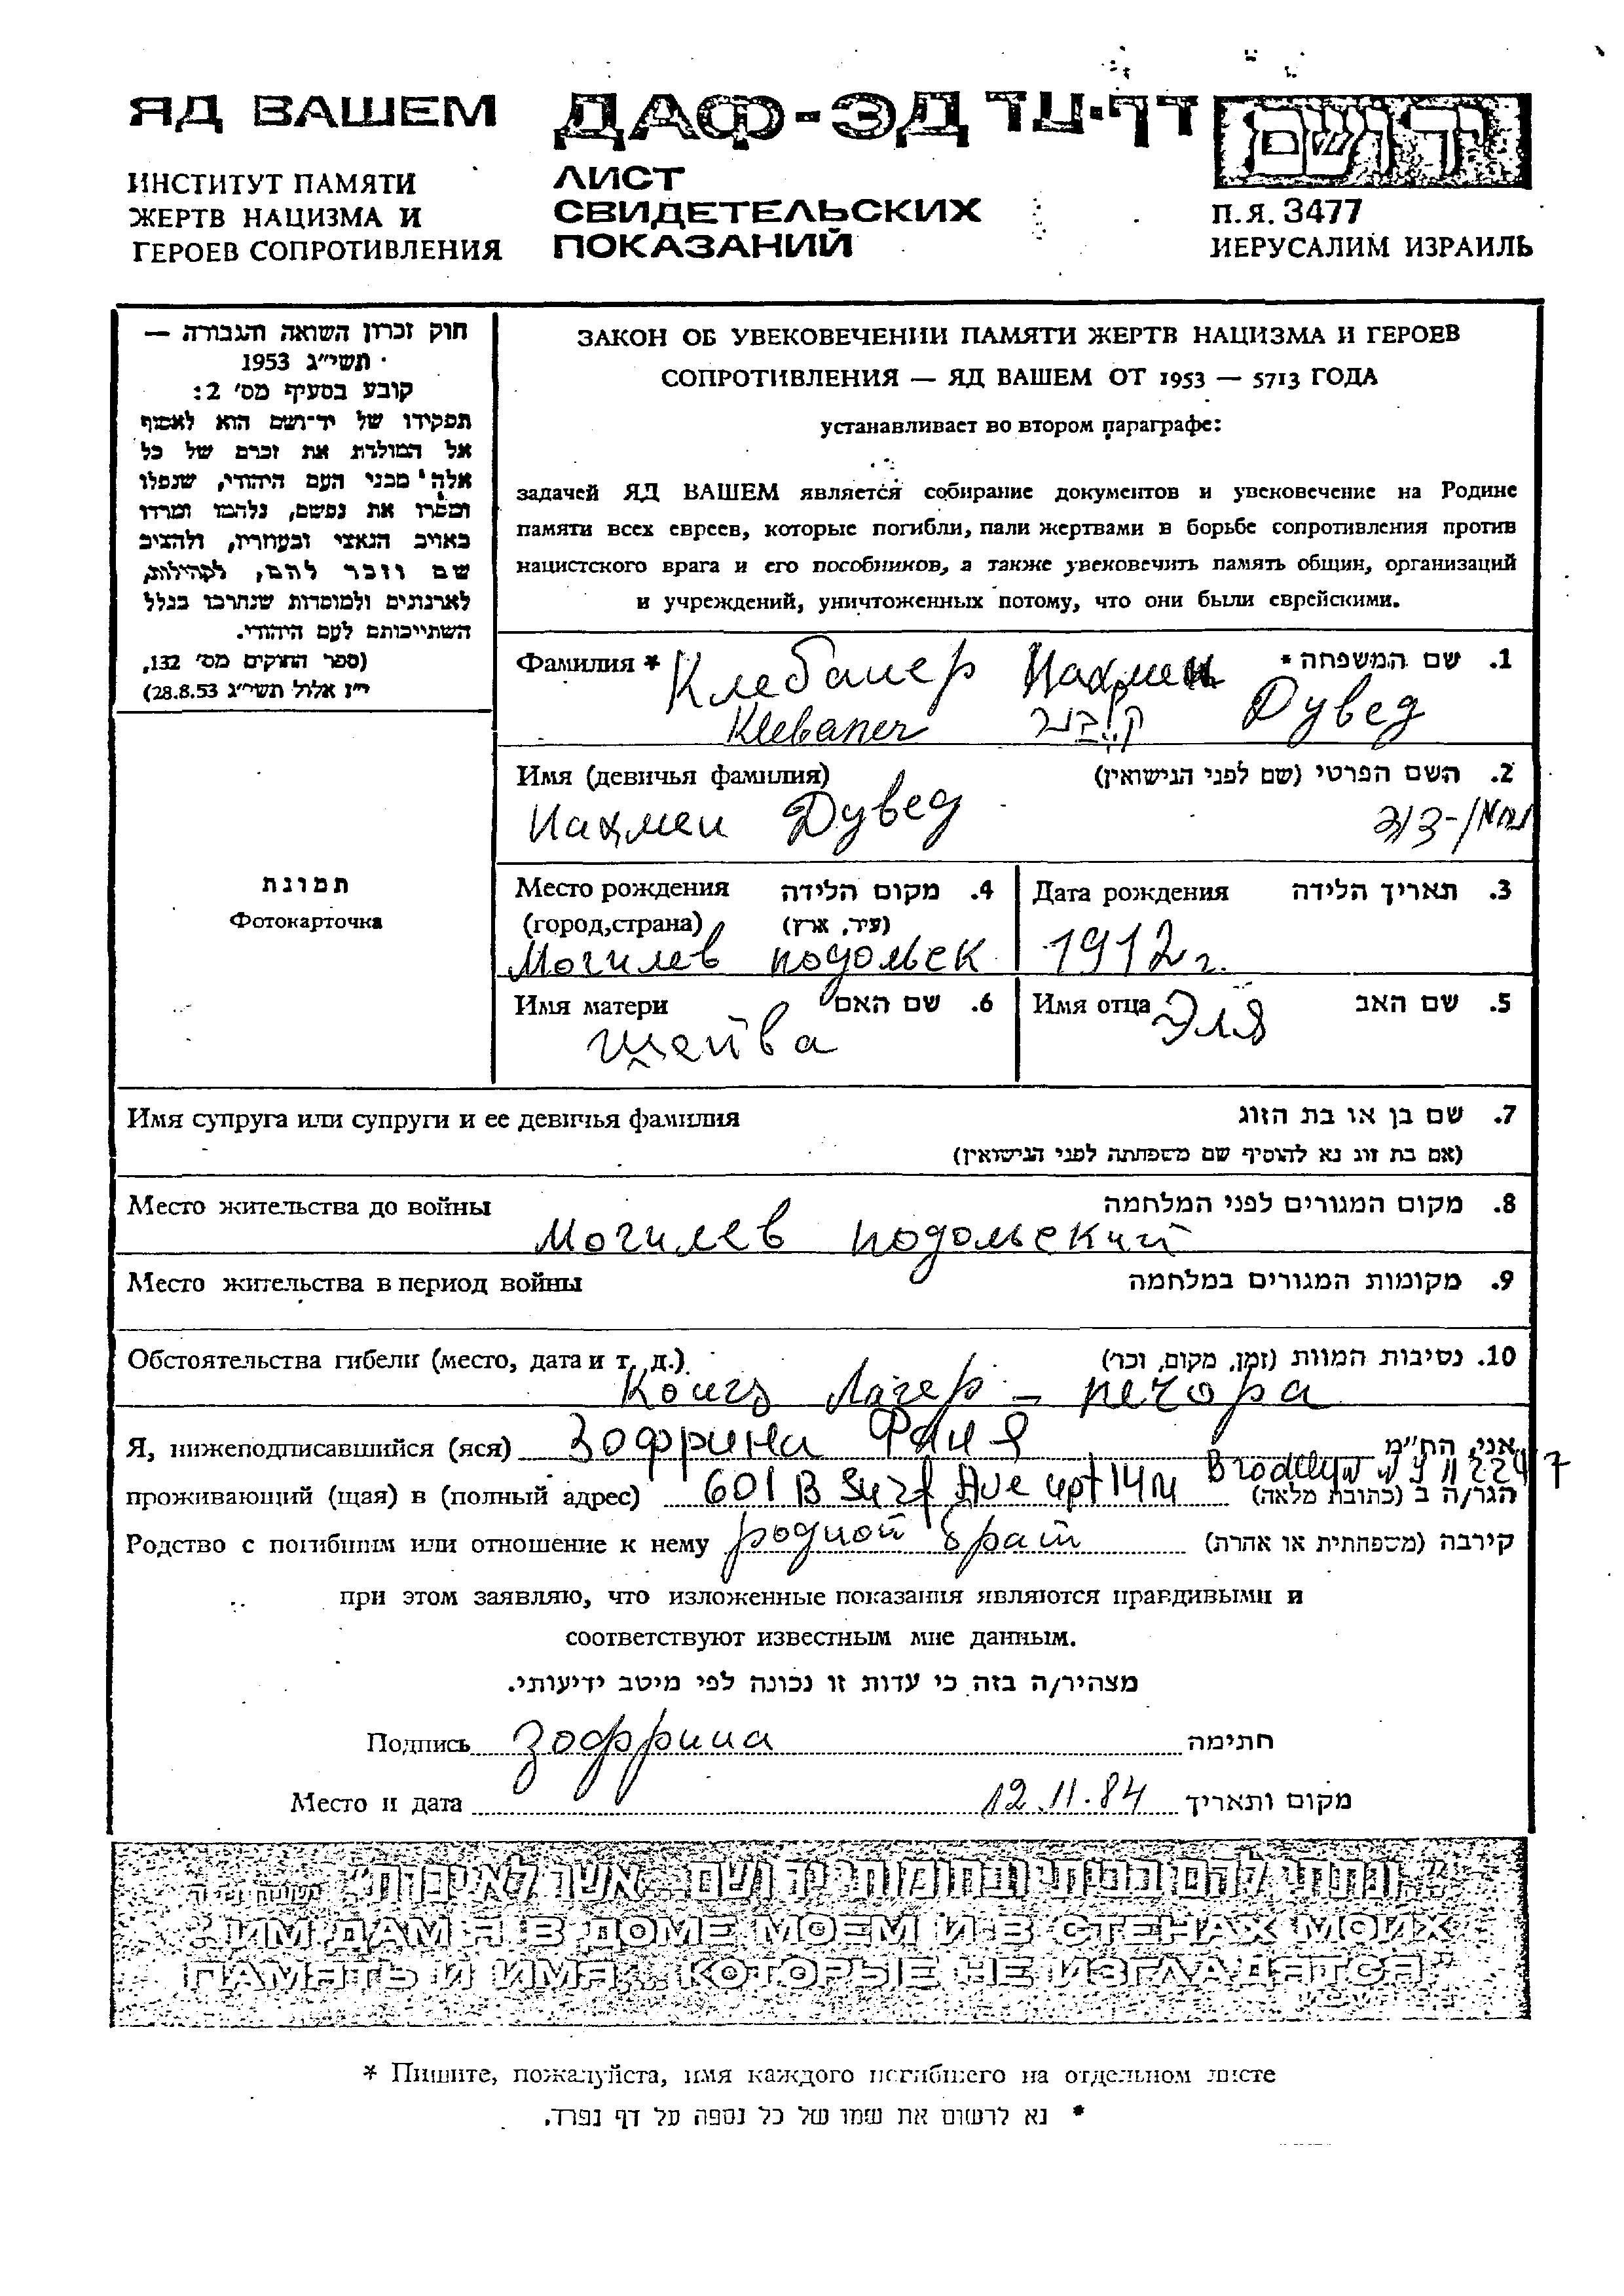 ЯД ВАШЕМ
ДАФ-ЭД דף-עד
יד ושם
ИНСТИТУТ ПАМЯТИ
ЖЕРТВ НАЦИЗМА И
ГЕРОЕВ СОПРОТИВЛЕНИЯ
ЛИСТ
СВИДЕТЕЛЬСКИХ
ПОКАЗАНИЙ
П.Я. 3477
ИЕРУСАЛИМ ИЗРАИЛЬ
חוק זכרון השואה והגבורה —
תשי״ג 1953
קובע בסעיף מס׳ 2:
תפקידו של יד־ושם הוא לאסוף
אל המולדת את זכרם של כל
אלה מבני העם היהודי, שנפלו
ומסרו את נפשם, נלחמו ומרדו
באויב הנאצי ובעוזריו, ולהציב
שם וזכר להם, לקהילות,
לארגונים ולמוסדות שנחרבו בגלל
השתייכותם לעם היהודי.
(ספר החוקים מס׳ 132,
י״ז אלול תשי״ג 28.8.53)
תמונת
Фотокарточка
ЗАКОН ОБ УВЕКОВЕЧЕНИИ ПАМЯТИ ЖЕРТВ НАЦИЗМА И ГЕРОЕВ
СОПРОТИВЛЕНИЯ — ЯД ВАШЕМ ОТ 1953 — 5713 ГОДА
устанавливает во втором параграфе:
задачей ЯД ВАШЕМ является собирание документов и увековечение на Родине
памяти всех евреев, которые погибли, пали жертвами в борьбе сопротивления против
нацистского врага и его пособников, а также увековечить память общин, организаций
и учреждений, уничтоженных потому, что они были еврейскими.
Фамилия * Клебанер Нахмен 1. שם המשפחה *
Klebaner Дувед
Имя (девичья фамилия) 2. השם הפרטי (שם לפני הנישואין)
Нахмен Дувед נחמן-דוד
Место рождения 4. מקום הלידה
(город,страна) (עיר, ארץ)
Могилев подольск
Дата рождения 3. תאריך הלידה
1912 г.
Имя матери 6. שם האם
Шейва
Имя отца Эля 5. שם האב
Имя супруга или супруги и ее девичья фамилия 7. שם בן או בת הזוג
(אם בת זוג נא להוסיף שם משפחתה לפני הנישואין)
Место жительства до войны 8. מקום המגורים לפני המלחמה
Могилев подольский
Место жительства в период войны 9. מקומות המגורים במלחמה
Обстоятельства гибели (место, дата и т. д.) 10. נסיבות המוות (זמן, מקום, וכר)
Конц Лагер - печора
Я, нижеподписавшийся (яся) Зофрина Фаня אני, הח״מ
проживающий (щая) в (полный адрес) 601 B Surf Ave apt 14M Brooklyn N Y 11224 הגר/ה ב (כתובת מלאה)
Родство с погибшим или отношение к нему родной брат קירבה (משפחתית או אחרת)
при этом заявляю, что изложенные показания являются правдивыми и
соответствуют известным мне данным.
מצהיר/ה בזה כי עדות זו נכונה לפי מיטב ידיעותי.
Подпись Зофрина חתימה
Место и дата 12.11.84 מקום ותאריך
"ונתתי להם בביתי ובחומותי יד ושם... אשר לא יכרת"
"ИМ ДАМ Я В ДОМЕ МОЕМ И В СТЕНАХ МОИХ
ПАМЯТЬ И ИМЯ... КОТОРЫЕ НЕ ИЗГЛАДЯТСЯ"
* Пишите, пожалуйста, имя каждого погибшего на отдельном листе
* נא לרשום את שמו של כל נספה על דף נפרד.